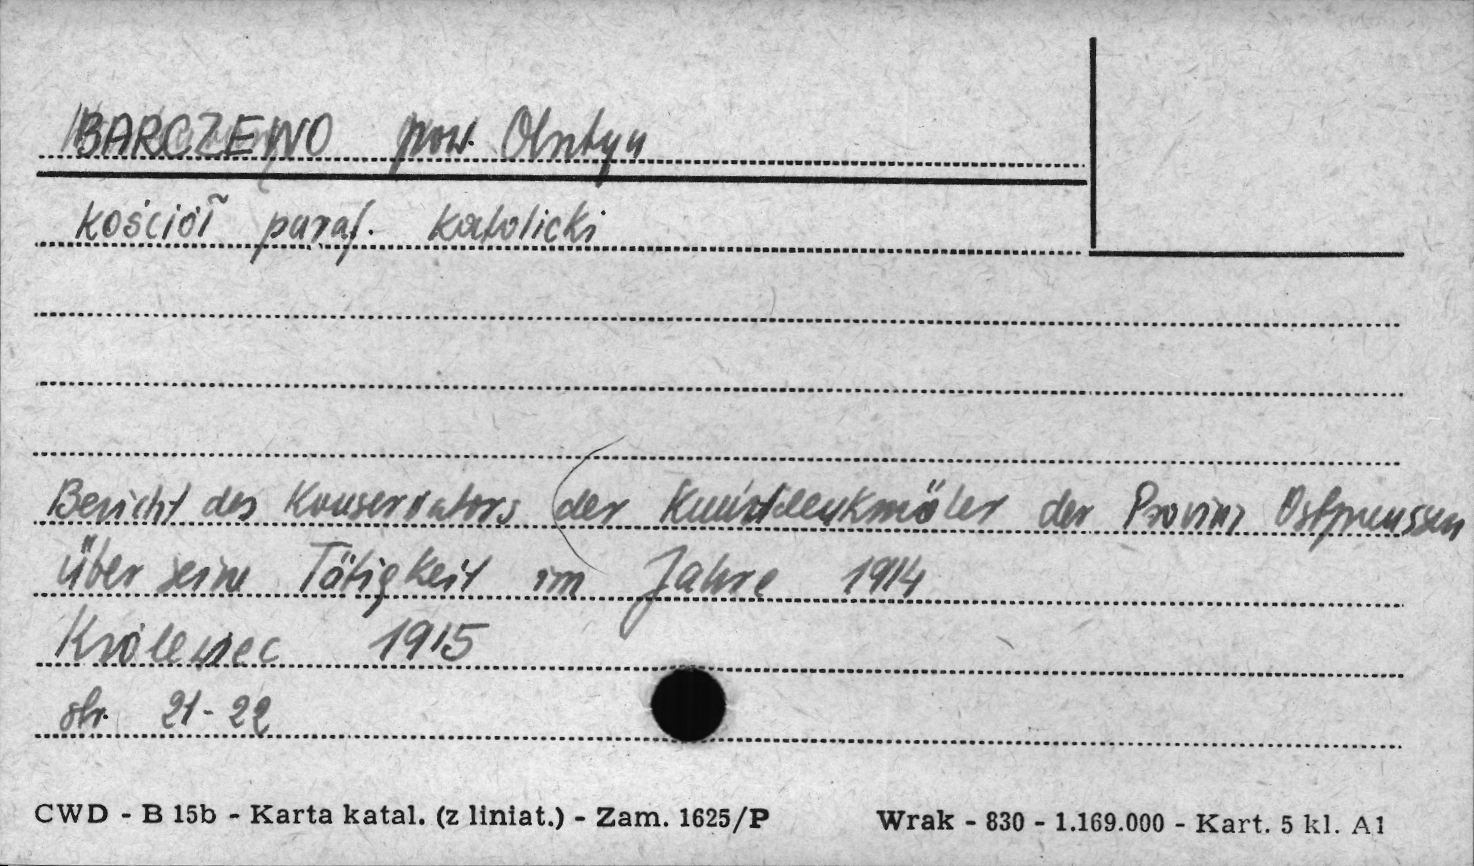 BARCZEWO pow. Olsztyn
kościół paraf. katolicki
Bericht des Konservators der Kunstdenkmäler der Provinz Ostpreussen
über seine Tätigkeit im Jahre 1914
Królewiec 1915
str. 21-22
CWD - B 15b - Karta katal. (z liniat.) - Zam. 1625/P Wrak - 830 - 1.169.000 - Kart. 5 kl. A1